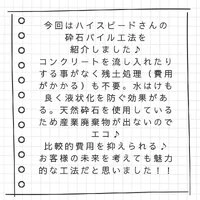 今回はハイスピードさんの
砕石パイル工法を
紹介しました♪
コンクリートを流し入れたり
する事がなく残土処理（費用
がかかる）も不要。水はけも
良く液状化を防ぐ効果があ
る。天然砕石を使用している
ため産業廃棄物が出ないので
エコ♪
比較的費用を抑えられる♪
お客様の未来を考えても魅力
的な工法だと思いました！！